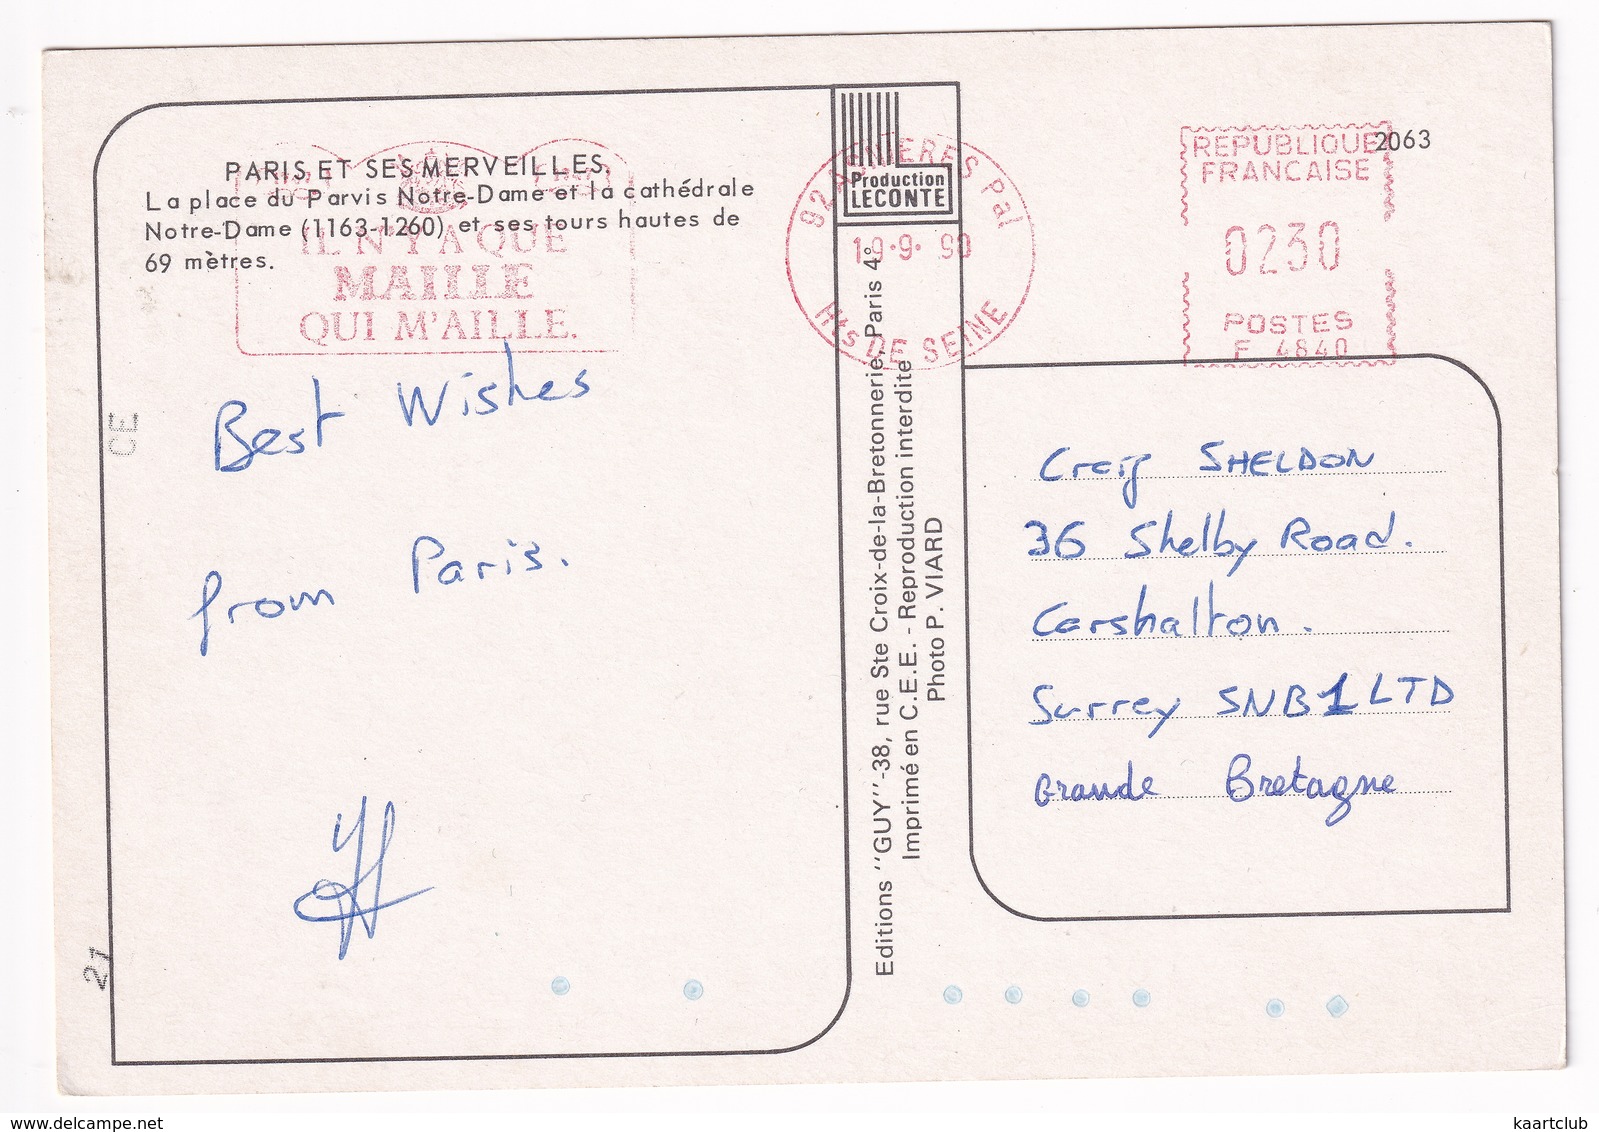 PARIS ET SES MERVEILLES.
La place du Parvis Notre-Dame et la cathédrale
Notre-Dame (1163-1260) et ses tours hautes de
69 mètres.
IL N'Y A QUE
MAILLE
QUI M'AILLE.
Production
LECONTE
92 ASNIERES Pal
19·9·90
Hts DE SEINE
REPUBLIQUE
FRANCAISE
0230
POSTES
F 4840
2063
Best Wishes
from Paris.
CE
21
Editions "GUY"-38, rue Ste Croix-de-la-Bretonnerie, Paris 4°
Imprimé en C.E.E. - Reproduction interdite
Photo P. VIARD
Craig SHELDON
36 Shelby Road.
Carshalton.
Surrey SNB1LTD
Grande Bretagne
kaartclub